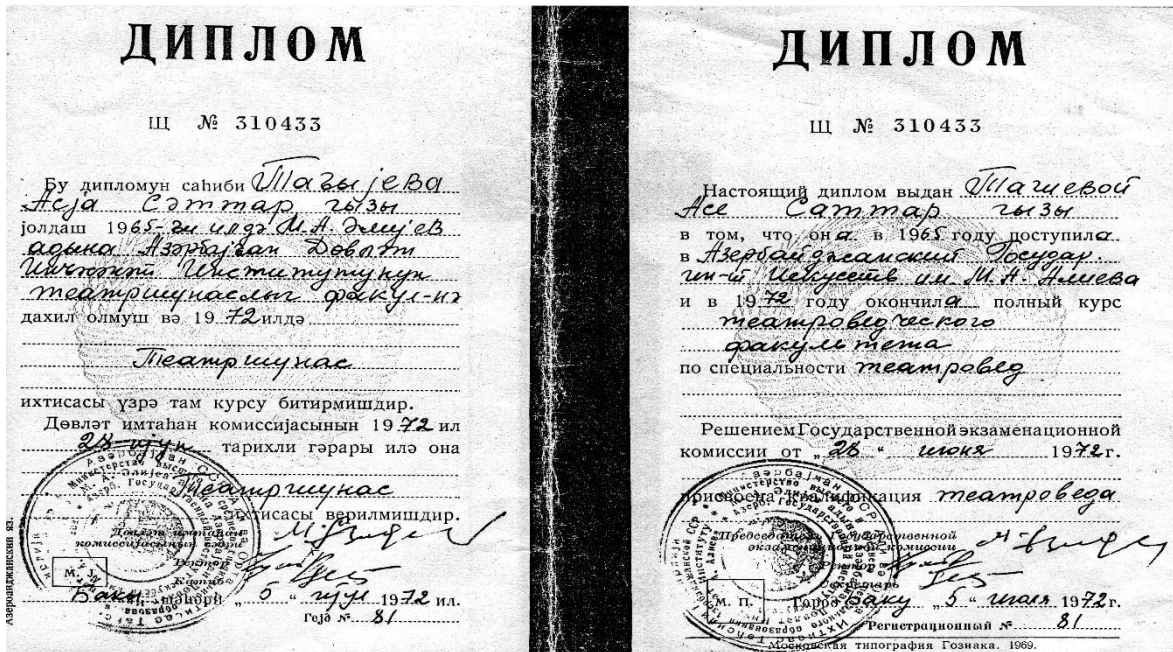 ДИПЛОМ
Щ № 310433
Бу дипломун саһиби Тағыјева
Асја Сәттар гызы
јолдаш 1965-ҹи илдә М.А. Әлијев
адына Азәрбајҹан Дөвләт
Инҹәсәнәт Институтунун
театршунаслыг факүл-нә
дахил олмуш вә 1972 илдә
Театршунас
ихтисасы үзрә там курсу битирмишдир.
Дөвләт имтаһан комиссијасынын 1972 ил
28 ијун тарихли гәрары илә она
Театршунас
ихтисасы верилмишдир.
Дөвләт имтаһан
комиссијасынын сәдри
Ректор
Катиб
М. Ј.
Бакы шәһәри „5“ ијул 1972 ил.
Гејдә № 81
Азербайджанский яз.
ДИПЛОМ
Щ № 310433
Настоящий диплом выдан Тагиевой
Асе Саттар гызы
в том, что она в 1965 году поступила
в Азербайджанский Государ.
ин-т Искусств им М.А. Алиева
и в 1972 году окончила полный курс
театроведческого
факультета
по специальности театровед
Решением Государственной экзаменационной
комиссии от „28“ июня 1972 г.
присвоена квалификация театроведа
Председатель Государственной
экзаменационной комиссии
Ректор
Секретарь
М. П.
Город Баку „5“ июля 1972 г.
Регистрационный № 81
Московская типография Гознака. 1969.